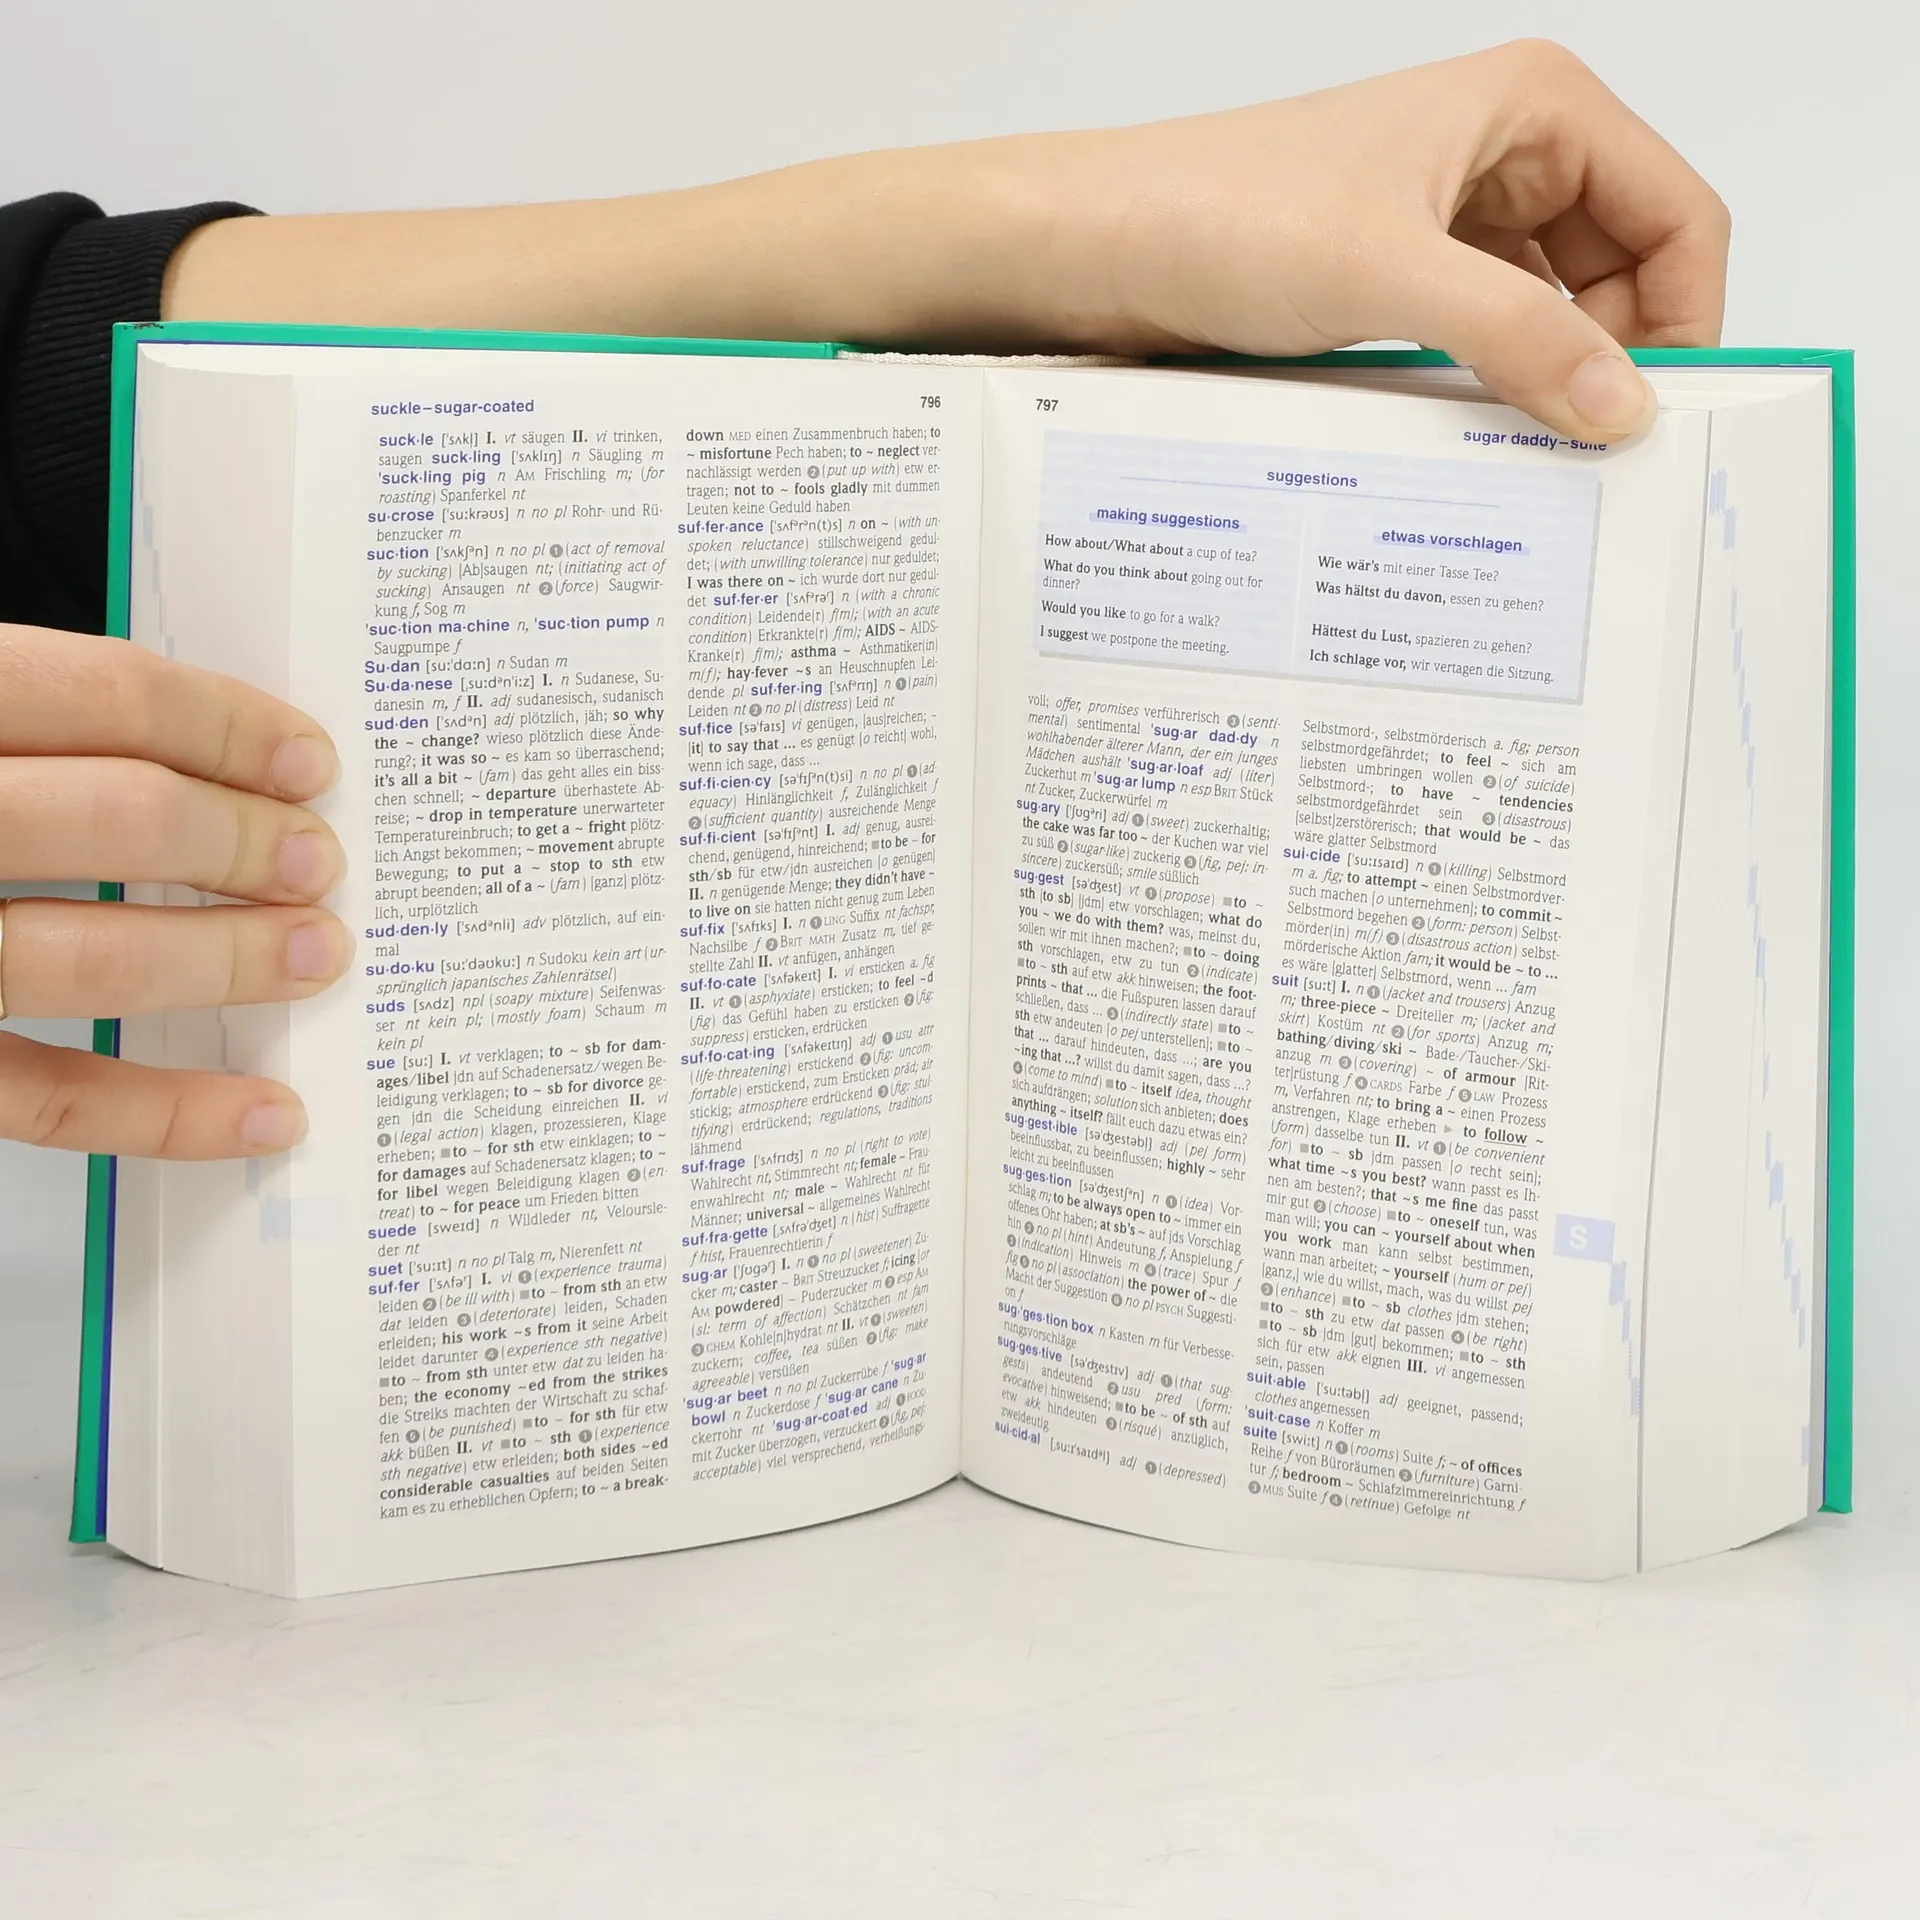 suckle–sugar-coated
796
suck·le [ˈsʌkl̩] I. vt säugen II. vi trinken,
saugen suck·ling [ˈsʌklɪŋ] n Säugling m
ˈsuck·ling pig n AM Frischling m; (for
roasting) Spanferkel nt
su·crose [ˈsu:krəʊs] n no pl Rohr- und Rü-
benzucker m
suc·tion [ˈsʌkʃᵊn] n no pl ❶ (act of removal
by sucking) [Ab]saugen nt; (initiating act of
sucking) Ansaugen nt ❷ (force) Saugwir-
kung f, Sog m
ˈsuc·tion ma·chine n, ˈsuc·tion pump n
Saugpumpe f
Su·dan [su:ˈdɑ:n] n Sudan m
Su·da·nese [ˌsu:dᵊnˈi:z] I. n Sudanese, Su-
danesin m, f II. adj sudanesisch, sudanisch
sud·den [ˈsʌdᵊn] adj plötzlich, jäh; so why
the ~ change? wieso plötzlich diese Ände-
rung?; it was so ~ es kam so überraschend;
it's all a bit ~ (fam) das geht alles ein biss-
chen schnell; ~ departure überhastete Ab-
reise; ~ drop in temperature unerwarteter
Temperatureinbruch; to get a ~ fright plötz-
lich Angst bekommen; ~ movement abrupte
Bewegung; to put a ~ stop to sth etw
abrupt beenden; all of a ~ (fam) [ganz] plötz-
lich, urplötzlich
sud·den·ly [ˈsʌdᵊnli] adv plötzlich, auf ein-
mal
su·do·ku [su:ˈdəʊku:] n Sudoku kein art (ur-
sprünglich japanisches Zahlenrätsel)
suds [sʌdz] npl (soapy mixture) Seifenwas-
ser nt kein pl; (mostly foam) Schaum m
kein pl
sue [su:] I. vt verklagen; to ~ sb for dam-
ages/libel jdn auf Schadenersatz/wegen Be-
leidigung verklagen; to ~ sb for divorce ge-
gen jdn die Scheidung einreichen II. vi
❶ (legal action) klagen, prozessieren, Klage
erheben; ■to ~ for sth etw einklagen; to ~
for damages auf Schadenersatz klagen; to ~
for libel wegen Beleidigung klagen ❷ (en-
treat) to ~ for peace um Frieden bitten
suede [sweɪd] n Wildleder nt, Veloursle-
der nt
suet [ˈsu:ɪt] n no pl Talg m, Nierenfett nt
suf·fer [ˈsʌfəʳ] I. vi ❶ (experience trauma)
leiden ❷ (be ill with) ■to ~ from sth an etw
dat leiden ❸ (deteriorate) leiden, Schaden
erleiden; his work ~s from it seine Arbeit
leidet darunter ❹ (experience sth negative)
■to ~ from sth unter etw dat zu leiden ha-
ben; the economy ~ed from the strikes
die Streiks machten der Wirtschaft zu schaf-
fen ❺ (be punished) ■to ~ for sth für etw
akk büßen II. vt ■to ~ sth ❶ (experience
sth negative) etw erleiden; both sides ~ed
considerable casualties auf beiden Seiten
kam es zu erheblichen Opfern; to ~ a break-
down MED einen Zusammenbruch haben; to
~ misfortune Pech haben; to ~ neglect ver-
nachlässigt werden ❷ (put up with) etw er-
tragen; not to ~ fools gladly mit dummen
Leuten keine Geduld haben
suf·fer·ance [ˈsʌfᵊrᵊn(t)s] n on ~ (with un-
spoken reluctance) stillschweigend gedul-
det; (with unwilling tolerance) nur geduldet;
I was there on ~ ich wurde dort nur gedul-
det suf·fer·er [ˈsʌfᵊrəʳ] n (with a chronic
condition) Leidende(r) f(m); (with an acute
condition) Erkrankte(r) f(m); AIDS ~ AIDS-
Kranke(r) f(m); asthma ~ Asthmatiker(in)
m(f); hay-fever ~s an Heuschnupfen Lei-
dende pl suf·fer·ing [ˈsʌfᵊrɪŋ] n ❶ (pain)
Leiden nt ❷ no pl (distress) Leid nt
suf·fice [səˈfaɪs] vi genügen, [aus]reichen; ~
[it] to say that ... es genügt [o reicht] wohl,
wenn ich sage, dass ...
suf·fi·cien·cy [səˈfɪʃᵊn(t)si] n no pl ❶ (ad-
equacy) Hinlänglichkeit f, Zulänglichkeit f
❷ (sufficient quantity) ausreichende Menge
suf·fi·cient [səˈfɪʃᵊnt] I. adj genug, ausrei-
chend, genügend, hinreichend; ■to be ~ for
sth/sb für etw/jdn ausreichen [o genügen]
II. n genügende Menge; they didn't have ~
to live on sie hatten nicht genug zum Leben
suf·fix [ˈsʌfɪks] I. n ❶ LING Suffix nt fachspr,
Nachsilbe f ❷ BRIT MATH Zusatz m, tief ge-
stellte Zahl II. vt anfügen, anhängen
suf·fo·cate [ˈsʌfəkeɪt] I. vi ersticken a. fig
II. vt ❶ (asphyxiate) ersticken; to feel ~d
(fig) das Gefühl haben zu ersticken ❷ (fig:
suppress) ersticken, erdrücken
suf·fo·cat·ing [ˈsʌfəkeɪtɪŋ] adj ❶ usu attr
(life-threatening) erstickend ❷ (fig: uncom-
fortable) erstickend, zum Ersticken präd; air
stickig; atmosphere erdrückend ❸ (fig: stul-
tifying) erdrückend; regulations, traditions
lähmend
suf·frage [ˈsʌfrɪdʒ] n no pl (right to vote)
Wahlrecht nt, Stimmrecht nt; female ~ Frau-
enwahlrecht nt; male ~ Wahlrecht nt für
Männer; universal ~ allgemeines Wahlrecht
suf·fra·gette [ˌsʌfrəˈdʒet] n (hist) Suffragette
f hist, Frauenrechtlerin f
sug·ar [ˈʃʊgəʳ] I. n ❶ no pl (sweetener) Zu-
cker m; caster ~ BRIT Streuzucker f; icing [or
AM powdered] ~ Puderzucker m ❷ esp AM
(sl: term of affection) Schätzchen nt fam
❸ CHEM Kohle[n]hydrat nt II. vt ❶ (sweeten)
zuckern; coffee, tea süßen ❷ (fig: make
agreeable) versüßen
ˈsug·ar beet n no pl Zuckerrübe f ˈsug·ar
bowl n Zuckerdose f ˈsug·ar cane n Zu-
ckerrohr nt ˈsug·ar-coat·ed adj ❶ FOOD
mit Zucker überzogen, verzuckert ❷ (fig, pej:
acceptable) viel versprechend, verheißungs-
797
sugar daddy–suite
suggestions
making suggestions
How about/What about a cup of tea?
What do you think about going out for
dinner?
Would you like to go for a walk?
I suggest we postpone the meeting.
etwas vorschlagen
Wie wär's mit einer Tasse Tee?
Was hältst du davon, essen zu gehen?
Hättest du Lust, spazieren zu gehen?
Ich schlage vor, wir vertagen die Sitzung.
voll; offer, promises verführerisch ❸ (senti-
mental) sentimental ˈsug·ar dad·dy n
wohlhabender älterer Mann, der ein junges
Mädchen aushält ˈsug·ar·loaf adj (liter)
Zuckerhut m ˈsug·ar lump n esp BRIT Stück
nt Zucker, Zuckerwürfel m
sug·ary [ˈʃʊgᵊri] adj ❶ (sweet) zuckerhaltig;
the cake was far too ~ der Kuchen war viel
zu süß ❷ (sugar-like) zuckerig ❸ (fig, pej: in-
sincere) zuckersüß; smile süßlich
sug·gest [səˈdʒest] vt ❶ (propose) ■to ~
sth [to sb] [jdm] etw vorschlagen; what do
you ~ we do with them? was, meinst du,
sollen wir mit ihnen machen?; ■to ~ doing
sth vorschlagen, etw zu tun ❷ (indicate)
■to ~ sth auf etw akk hinweisen; the foot-
prints ~ that ... die Fußspuren lassen darauf
schließen, dass ... ❸ (indirectly state) ■to ~
sth etw andeuten [o pej unterstellen]; ■to ~
that ... darauf hindeuten, dass ...; are you
~ing that ...? willst du damit sagen, dass ...?
❹ (come to mind) ■to ~ itself idea, thought
sich aufdrängen; solution sich anbieten; does
anything ~ itself? fällt euch dazu etwas ein?
sug·gest·ible [səˈdʒestəbl̩] adj (pej form)
beeinflussbar, zu beeinflussen; highly ~ sehr
leicht zu beeinflussen
sug·ges·tion [səˈdʒestʃᵊn] n ❶ (idea) Vor-
schlag m; to be always open to ~ immer ein
offenes Ohr haben; at sb's ~ auf jds Vorschlag
hin ❷ no pl (hint) Andeutung f, Anspielung f
❸ (indication) Hinweis m ❹ (trace) Spur f
fig ❺ no pl (association) the power of ~ die
Macht der Suggestion ❻ no pl PSYCH Suggesti-
on f
sug·ˈges·tion box n Kasten m für Verbesse-
rungsvorschläge
sug·ges·tive [səˈdʒestɪv] adj ❶ (that sug-
gests) andeutend ❷ usu pred (form:
evocative) hinweisend; ■to be ~ of sth auf
etw akk hindeuten ❸ (risqué) anzüglich,
zweideutig
sui·cid·al [ˌsu:ɪˈsaɪdᵊl] adj ❶ (depressed)
Selbstmord-, selbstmörderisch a. fig; person
selbstmordgefährdet; to feel ~ sich am
liebsten umbringen wollen ❷ (of suicide)
Selbstmord-; to have ~ tendencies
selbstmordgefährdet sein ❸ (disastrous)
[selbst]zerstörerisch; that would be ~ das
wäre glatter Selbstmord
sui·cide [ˈsu:ɪsaɪd] n ❶ (killing) Selbstmord
m a. fig; to attempt ~ einen Selbstmordver-
such machen [o unternehmen]; to commit ~
Selbstmord begehen ❷ (form: person) Selbst-
mörder(in) m(f) ❸ (disastrous action) selbst-
mörderische Aktion fam; it would be ~ to ...
es wäre [glatter] Selbstmord, wenn ... fam
suit [su:t] I. n ❶ (jacket and trousers) Anzug
m; three-piece ~ Dreiteiler m; (jacket and
skirt) Kostüm nt ❷ (for sports) Anzug m;
bathing/diving/ski ~ Bade-/Taucher-/Ski-
anzug m ❸ (covering) ~ of armour [Rit-
ter]rüstung f ❹ CARDS Farbe f ❺ LAW Prozess
m, Verfahren nt; to bring a ~ einen Prozess
anstrengen, Klage erheben ▶ to follow ~
(form) dasselbe tun II. vt ❶ (be convenient
for) ■to ~ sb jdm passen [o recht sein];
what time ~s you best? wann passt es Ih-
nen am besten?; that ~s me fine das passt
mir gut ❷ (choose) ■to ~ oneself tun, was
man will; you can ~ yourself about when
you work man kann selbst bestimmen,
wann man arbeitet; ~ yourself (hum or pej)
[ganz,] wie du willst, mach, was du willst pej
❸ (enhance) ■to ~ sb clothes jdm stehen;
■to ~ sth zu etw dat passen ❹ (be right)
■to ~ sb jdm [gut] bekommen; ■to ~ sth
sich für etw akk eignen III. vi angemessen
sein, passen
suit·able [ˈsu:təbl̩] adj geeignet, passend;
clothes angemessen
ˈsuit·case n Koffer m
suite [swi:t] n ❶ (rooms) Suite f; ~ of offices
Reihe f von Büroräumen ❷ (furniture) Garni-
tur f; bedroom ~ Schlafzimmereinrichtung f
❸ MUS Suite f ❹ (retinue) Gefolge nt
S